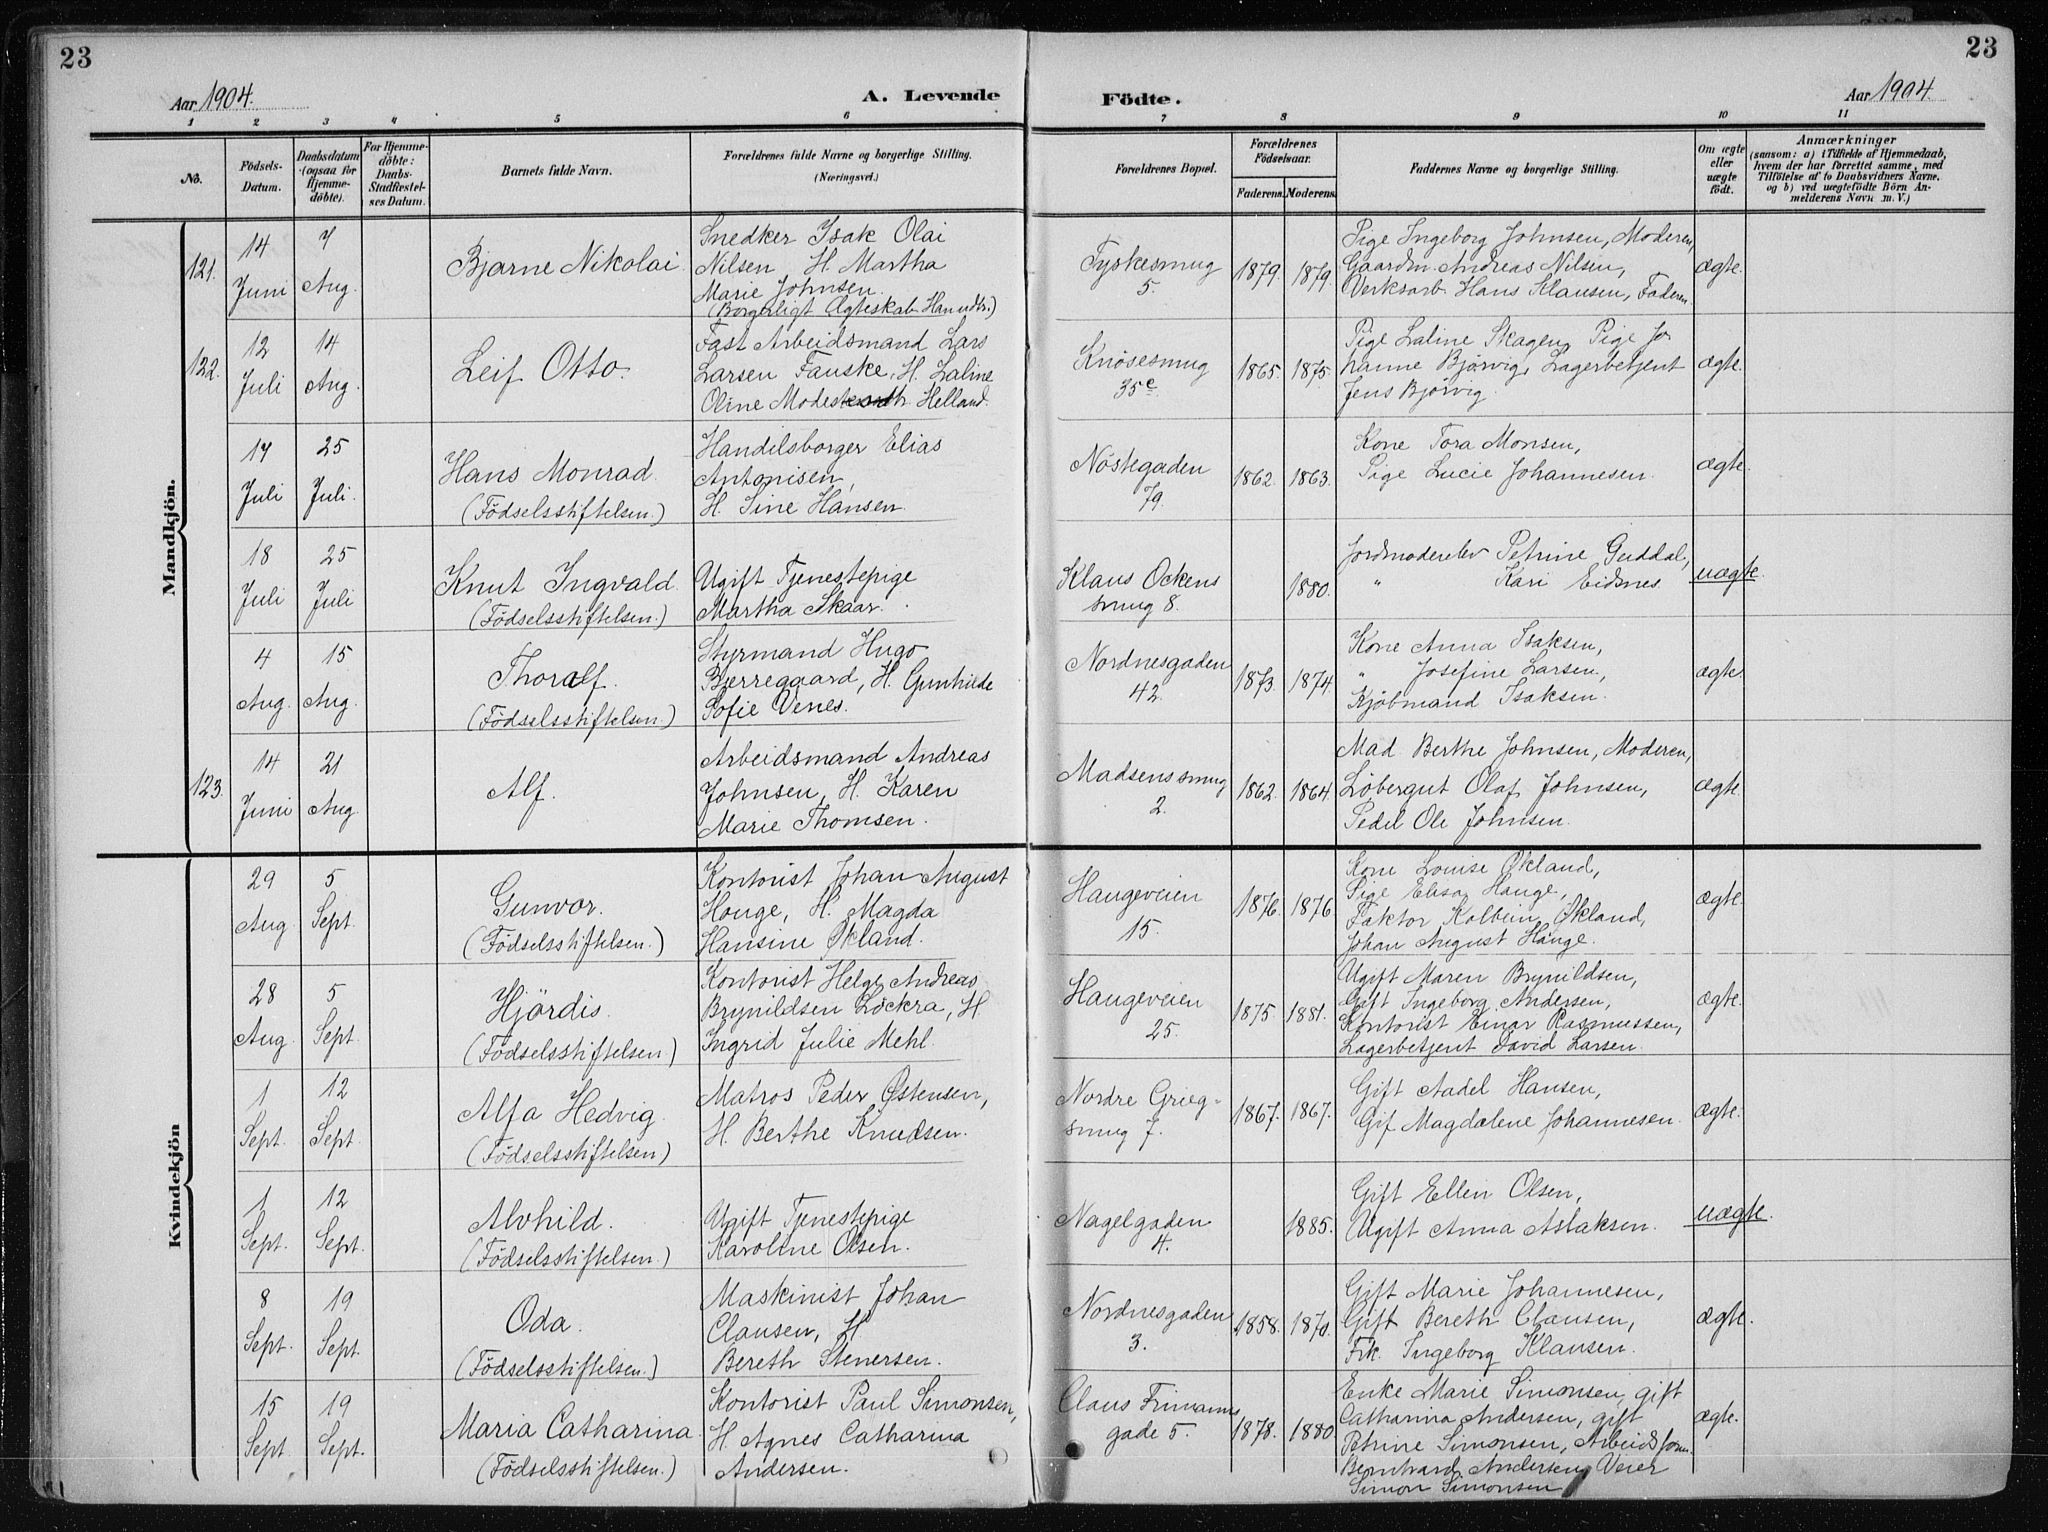 23
23
Aar 1904.
A. Levende
Födte.
Aar 1904
1 2 3 4 5 6 7 8 9 10 11
No.
Födsels-Datum.
Daabsdatum (ogsaa for Hjemmedöbte).
For Hjemmedöbte: Daabs-Stadfæstelses Datum.
Barnets fulde Navn.
Forældrenes fulde Navne og borgerlige Stilling.
(Næringsvei.)
Forældrenes Bopæl.
Forældrenes Födselsaar.
Faderens. Moderens.
Faddernes Navne og borgerlige Stilling.
Om ægte eller uægte födt.
Anmærkninger
(saasom: a) i Tilfælde af Hjemmedaab, hvem der har forrettet samme, med Tilföielse af to Daabsvidners Navne. og b) ved uægtefödte Börn Anmelderens Navn m. V.)
Mandkjön.
121.
14 Juni
7 Aug.
Bjarne Nikolai
Snedker Isak Olai
Nilsen, H. Martha
Marie Johnsen.
(Borgerligt Ægteskab. Han udtr.)
Tyskesmug
5.
1879. 1879.
Pige Ingeborg Johnsen, Moderen,
Gaardm. Andreas Nilsen,
Verksarb. Hans Klausen, Faderen.
ægte.
122.
12 Juli
14 Aug.
Leif Otto.
Fast Arbeidsmand Lars
Larsen Fauske, H. Laline
Oline Modest Helland.
Knösesmug
35c
1865. 1875.
Pige Laline Skagen, Pige Jo
hanne Bjørvig, Lagerbetjent
Jens Bjørvig.
ægte.
17 Juli
25 Juli.
Hans Monrad
(Födselsstiftelsen.)
Handelsborger Elias
Antonisen,
H. Sine Hansen.
Nöstegaden
79.
1862. 1863.
Kone Tora Monsen,
Pige Lucie Johannesen.
ægte.
18 Juli
25 Juli
Knut Ingvald.
(Födselsstiftelsen.)
Ugift Tjenestepige
Martha Skaar.
Klaus Ockens
smug 8.
1880.
Jordmoderelev Petrine Guddal,
" Kari Eidsnes.
uægte.
4 Aug.
15 Aug.
Thoralf.
(Födselsstiftelsen.)
Styrmand Hugo
Bjerregaard, H. Gunhilde
Sofie Venes.
Nordnesgaden
42.
1873. 1874.
Kone Anna Isaksen,
" Josefine Larsen,
Kjöbmand Isaksen.
ægte.
123.
14 Juni
21 Aug.
Alf.
Arbeidsmand Andreas
Johnsen, H. Karen
Marie Thomsen.
Madsenssmug
2.
1862. 1864.
Mad. Berthe Johnsen, Moderen,
Løbergut Olaf Johnsen,
Pedel Ole Johnsen.
ægte.
Kvindekjön
29 Aug.
5 Sept.
Gunvor.
(Födselsstiftelsen.)
Kontorist Johan August
Hauge, H. Magda
Hansine Økland.
Haugeveien
15.
1876. 1876
Kone Louise Økland,
Pige Elisa Hauge,
Faktor Kolbein Økland,
Johan August Hauge.
ægte.
28 Aug.
5 Sept.
Hjördis.
(Födselsstiftelsen)
Kontorist Helge Andreas
Brynildsen Löckra, H.
Ingrid Julie Mehl.
Haugeveien
25.
1875. 1881.
Ugift Maren Brynildsen,
Gift Ingeborg Andersen,
Kontorist Einar Rasmussen,
Lagerbetjent David Larsen.
ægte.
1 Sept.
12 Sept.
Alfa Hedvig.
(Födselsstiftelsen)
Matros Peder Østensen,
H. Berthe Knudsen.
Nordre Grieg-
smug 7.
1867. 1867.
Gift Aadel Hansen,
Gif Magdalene Johannesen.
ægte.
1 Sept.
12 Sept.
Alvhild.
(Födselsstiftelsen.)
Ugift Tjenestepige
Karoline Olsen.
Nagelgaden
4.
1885.
Gift Ellen Olsen,
Ugift Anna Aslaksen.
uægte.
8 Sept.
19 Sept.
Oda.
(Födselsstiftelsen.)
Maskinist Johan
Clausen, H.
Bereth Stenersen.
Nordnesgaden
3.
1858. 1870.
Gift Marie Johannesen,
Gift Bereth Clausen,
Frk. Ingeborg Klausen.
ægte.
15 Sept.
19 Sept.
Maria Catharina
(Födselsstiftelsen.)
Kontorist Paul Simonsen,
H. Agnes Catharina
Andersen.
Claus Frimanns
gade 5.
1878. 1880
Enke Marie Simonsen, gift
Catharina Andersen, gift
Petrine Simonsen, Arbeidsform.
Bernhard Andersen, Veier
Simon Simonsen
ægte.